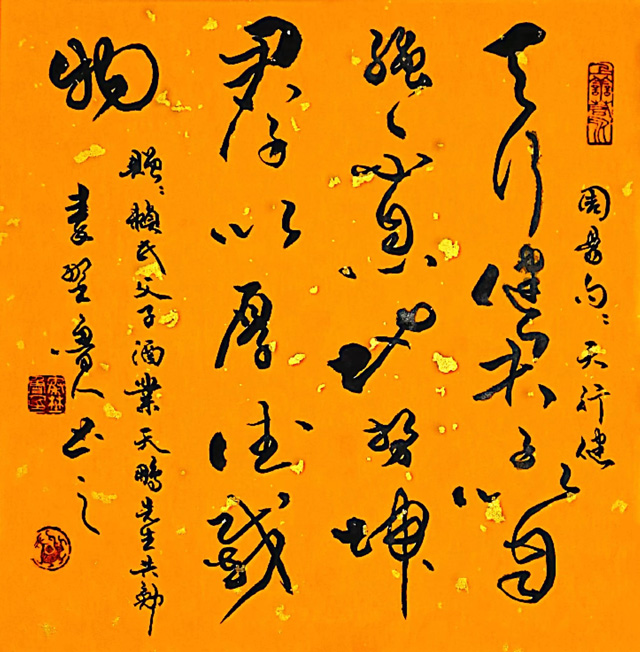 周易句：天行健
天行健君子以自
強々不息地势坤
君子以厚德載
物
赠：赖氏父子酒業天鹏先生共勉
书之